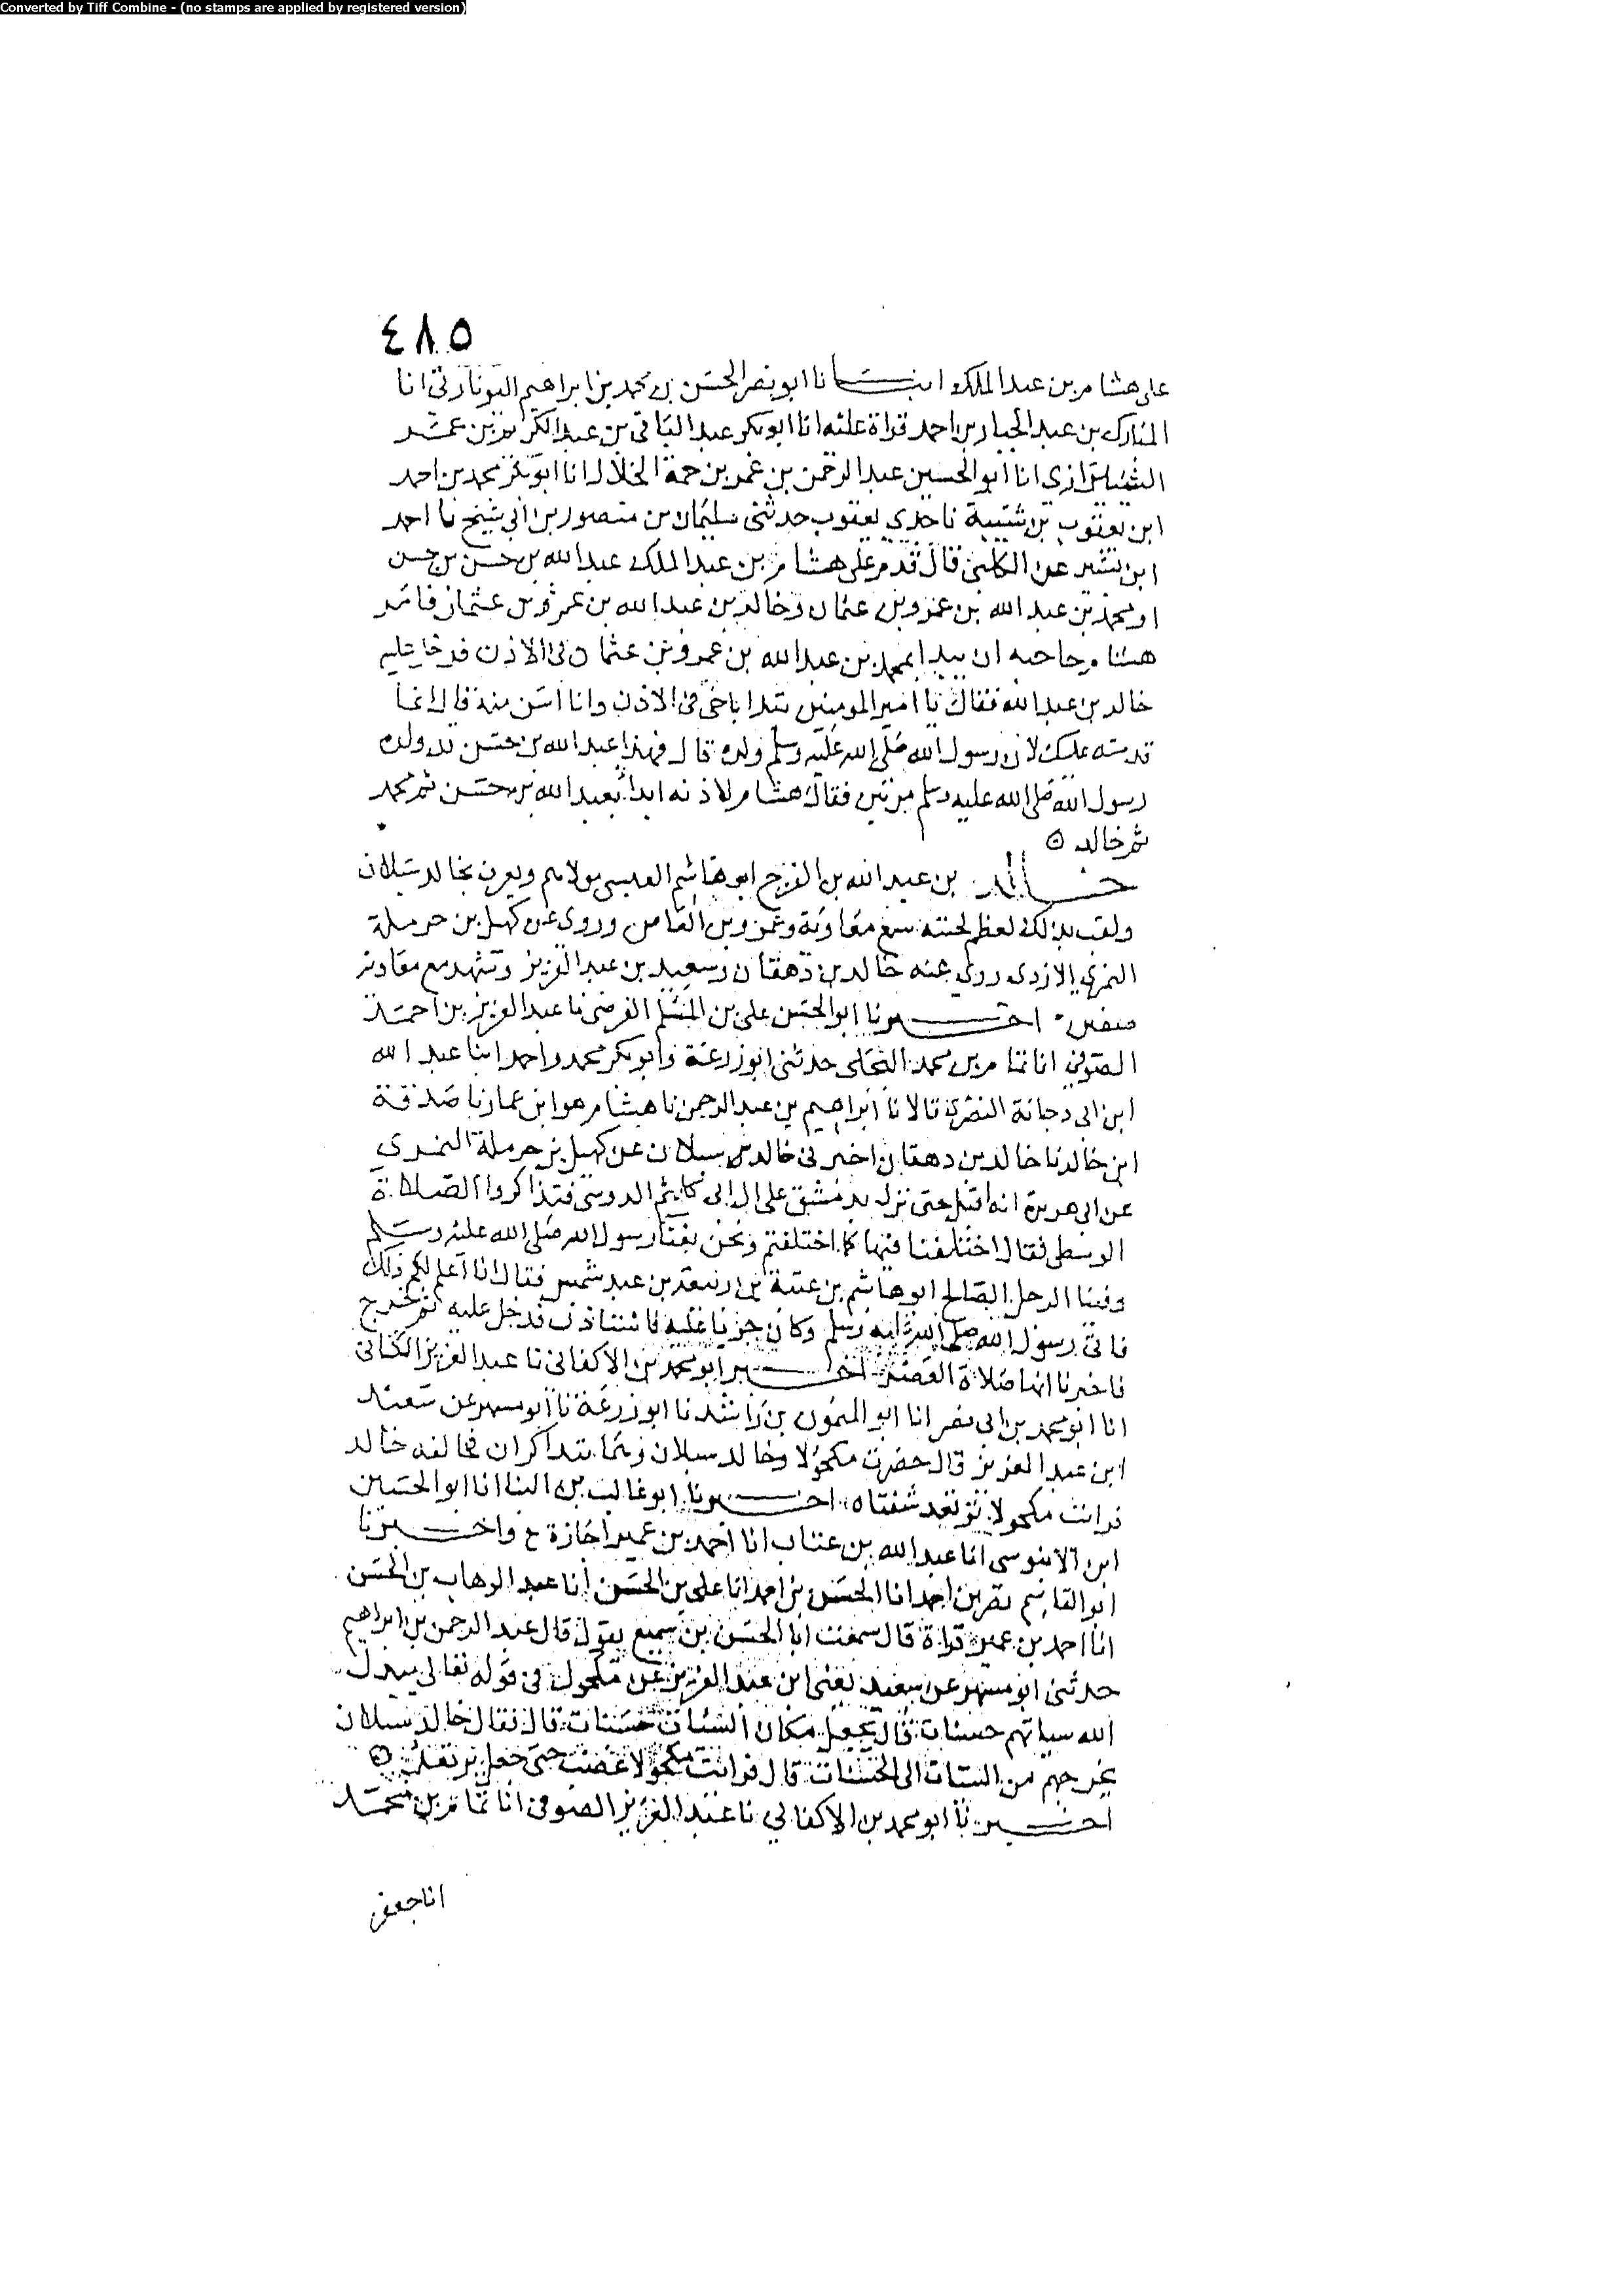 Converted by Tiff Combine - (no stamps are applied by registered version)
٤٨٥
على هشام بن عبد الملك انبانا ابو نصر الحسن بن محمد بن ابراهيم اليونارتي انا
المبارك بن عبد الجبار بن احمد قراة عليه انا ابو بكر عبد الباقي بن عبد الكريم بن عمر
الشيرازي انا ابو الحسين عبد الرحمن بن عمر بن حمة الخلال انا ابو بكر محمد بن احمد
ابن يعقوب بن شيبة نا جدي يعقوب حدثني سليمان بن منصور بن ابي شيخ نا احمد
ابن بشير عن الكلبي قال قدم على هشام بن عبد الملك عبد الله بن حسن بن حسن
او محمد بن عبد الله بن عمرو بن عثمان وخالد بن عبد الله بن عمرو بن عثمان فامر
هشام حاجبه ان يبدا بمحمد بن عبد الله بن عمرو بن عثمان في الاذن فدخل عليه
خالد بن عبد الله فقال يا امير المومنين تبدا باخي في الاذن وانا اسن منه قال انما
قدمته عليك لان رسول الله صلى الله عليه وسلم ولده قال فهذا عبد الله بن حسن قد ولده
رسول الله صلى الله عليه وسلم مرتين فقال هشام لاذنه ابدا بعبد الله بن حسن ثم محمد
ثم خالد
خالد بن عبد الله بن الفرج ابو هاشم العبسي مولاهم ويعرف بخالد سبلان
ولقب بذلك لعظم لحيته سمع معاوية وعمرو بن العاص وروى عن كهيل بن حرملة
النمري الازدي روى عنه خالد بن دهقان وسعيد بن عبد العزيز وشهد مع معاوية
صفين اخبرنا ابو الحسن علي بن المسلم الفرضي نا عبد العزيز بن احمد
الصوفي انا تمام بن محمد البجلي حدثني ابو زرعة وابو بكر محمد واحمد ابنا عبد الله
ابن ابي دجانة النصري قالا نا ابراهيم بن عبد الرحمن نا هشام هو ابن عمار نا صدقة
ابن خالد نا خالد بن دهقان اخبرني خالد بن سبلان عن كهيل بن حرملة النمري
عن ابي هريرة انه اقبل حتى نزل بدمشق على ال ابي كلثم الدوسي فتذاكروا الصلاة
الوسطى فقال اختلفنا فيها كما اختلفتم ونحن بفنا رسول الله صلى الله عليه وسلم
وفينا الرجل الصالح ابو هاشم بن عتبة بن ربيعة بن عبد شمس فقال انا اعلم لكم ذلك
فاتى رسول الله صلى الله عليه وسلم وكان جريا عليه فاستاذن فدخل عليه ثم خرج
فاخبرنا انها صلاة العصر اخبرنا ابو محمد بن الاكفاني نا عبد العزيز الكتاني
انا ابو محمد بن ابي نصر انا ابو الميمون بن راشد نا ابو زرعة نا ابو مسهر عن سعيد
ابن عبد العزيز قال حضرت مكحولا وخالد سبلان وهما يتذاكران فخالفه خالد
فرايت مكحولا ترتعد شفتاه اخبرنا ابو غالب بن البنا انا ابو الحسين
ابن الابنوسي انا عبد الله بن عتاب انا احمد بن عمير اجازة ح واخبرنا
ابو القاسم نصر بن احمد انا الحسن بن احمد انا علي بن الحسن انا عبد الوهاب بن الحسن
انا احمد بن عمير قراة قال سمعت ابا الحسن بن سميع يقول قال عبد الرحمن بن ابراهيم
حدثني ابو مسهر عن سعيد يعني ابن عبد العزيز عن مكحول في قوله تعالى يبدل
الله سياتهم حسنات قال يجعل مكان السيات حسنات قال فقال خالد سبلان
يخرجهم من السيات الى الحسنات قال فرايت مكحولا غضب حتى جعل يرتعد
اخبرنا ابو محمد بن الاكفاني نا عبد العزيز الصوفي انا تمام بن محمد
انا جعفر